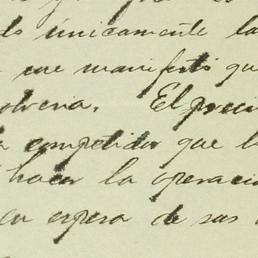 únicamente la
me manifestó qu
olveria. El
competidor que l
hacer la operaci
en espera de sus